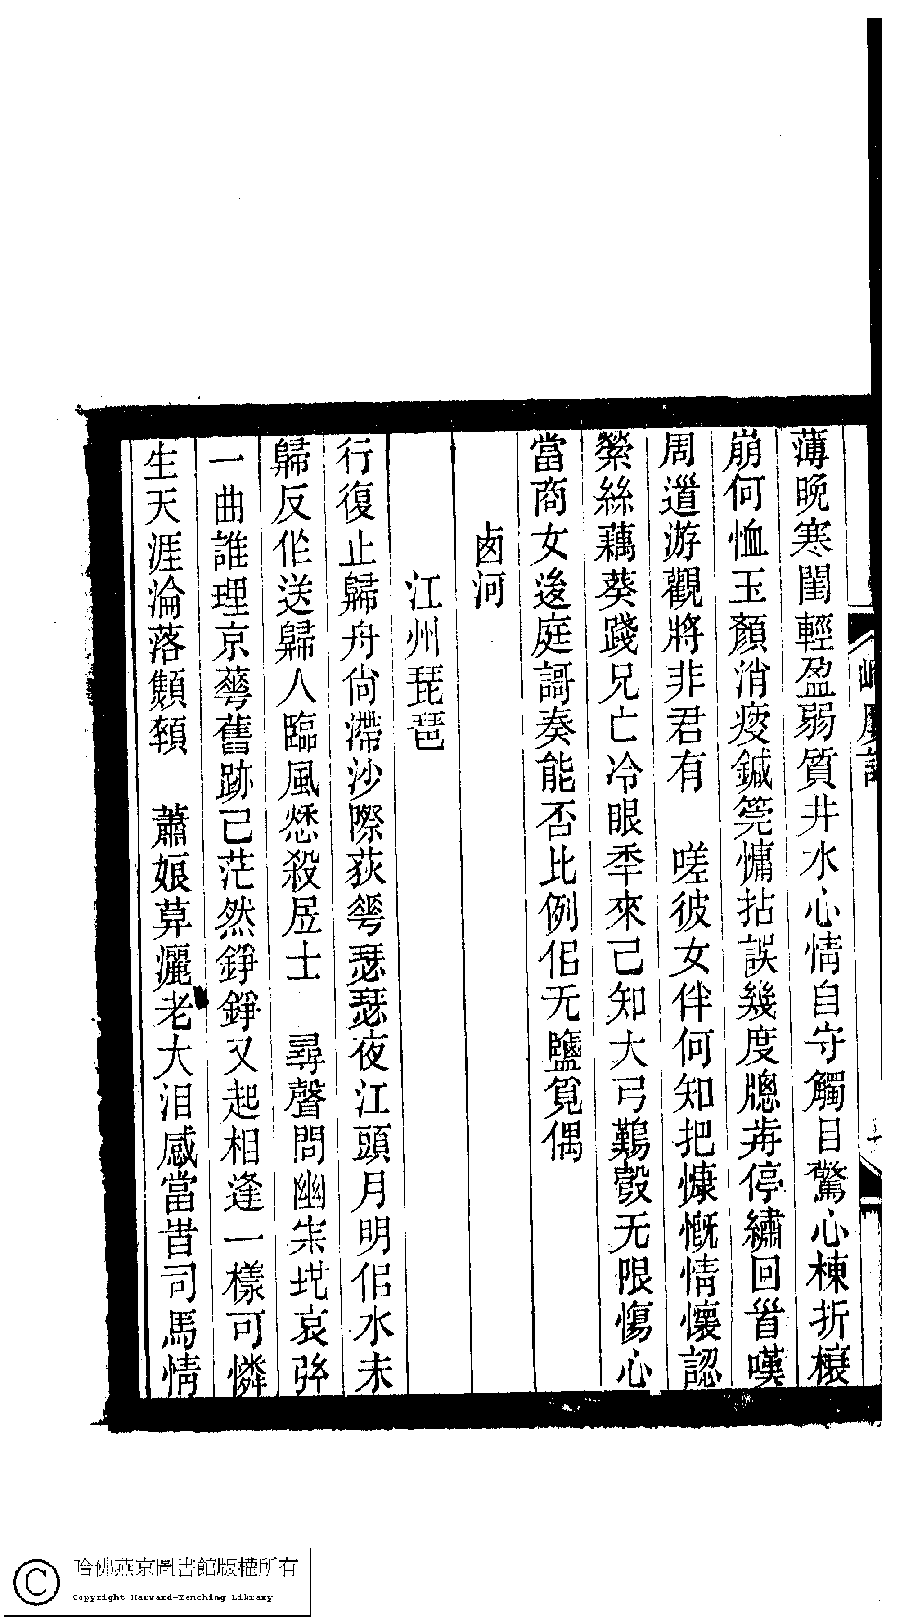 薄晚寒閨輕盈弱質井水心情自守觸目驚心棟折榱
崩何恤玉顏消瘦鍼筦慵拈誤幾度牕歬停繡回𩠐嘆
周道游觀將非君有　嗟彼女伴何知把慷慨情懷認
縈絲藕葵踐兄亡冷眼秊來已知大弓鷄彀无限傷心
當商女後庭謌奏能否比例侶无鹽覓偶
卤河
江州琵琶
行復止歸舟尙滯沙際荻芲瑟瑟夜江頭月明侶水未
歸反作送歸人臨風愁殺居士　尋聲問幽哀
一曲誰理京蕚舊跡已茫然錚錚又起相逢一樣可憐
生天涯淪落顦顇　蕭娘莫灑老大泪感當昔司馬情
哈佛燕京圖書館版權所有
Copyright Harvard-Yenching Library